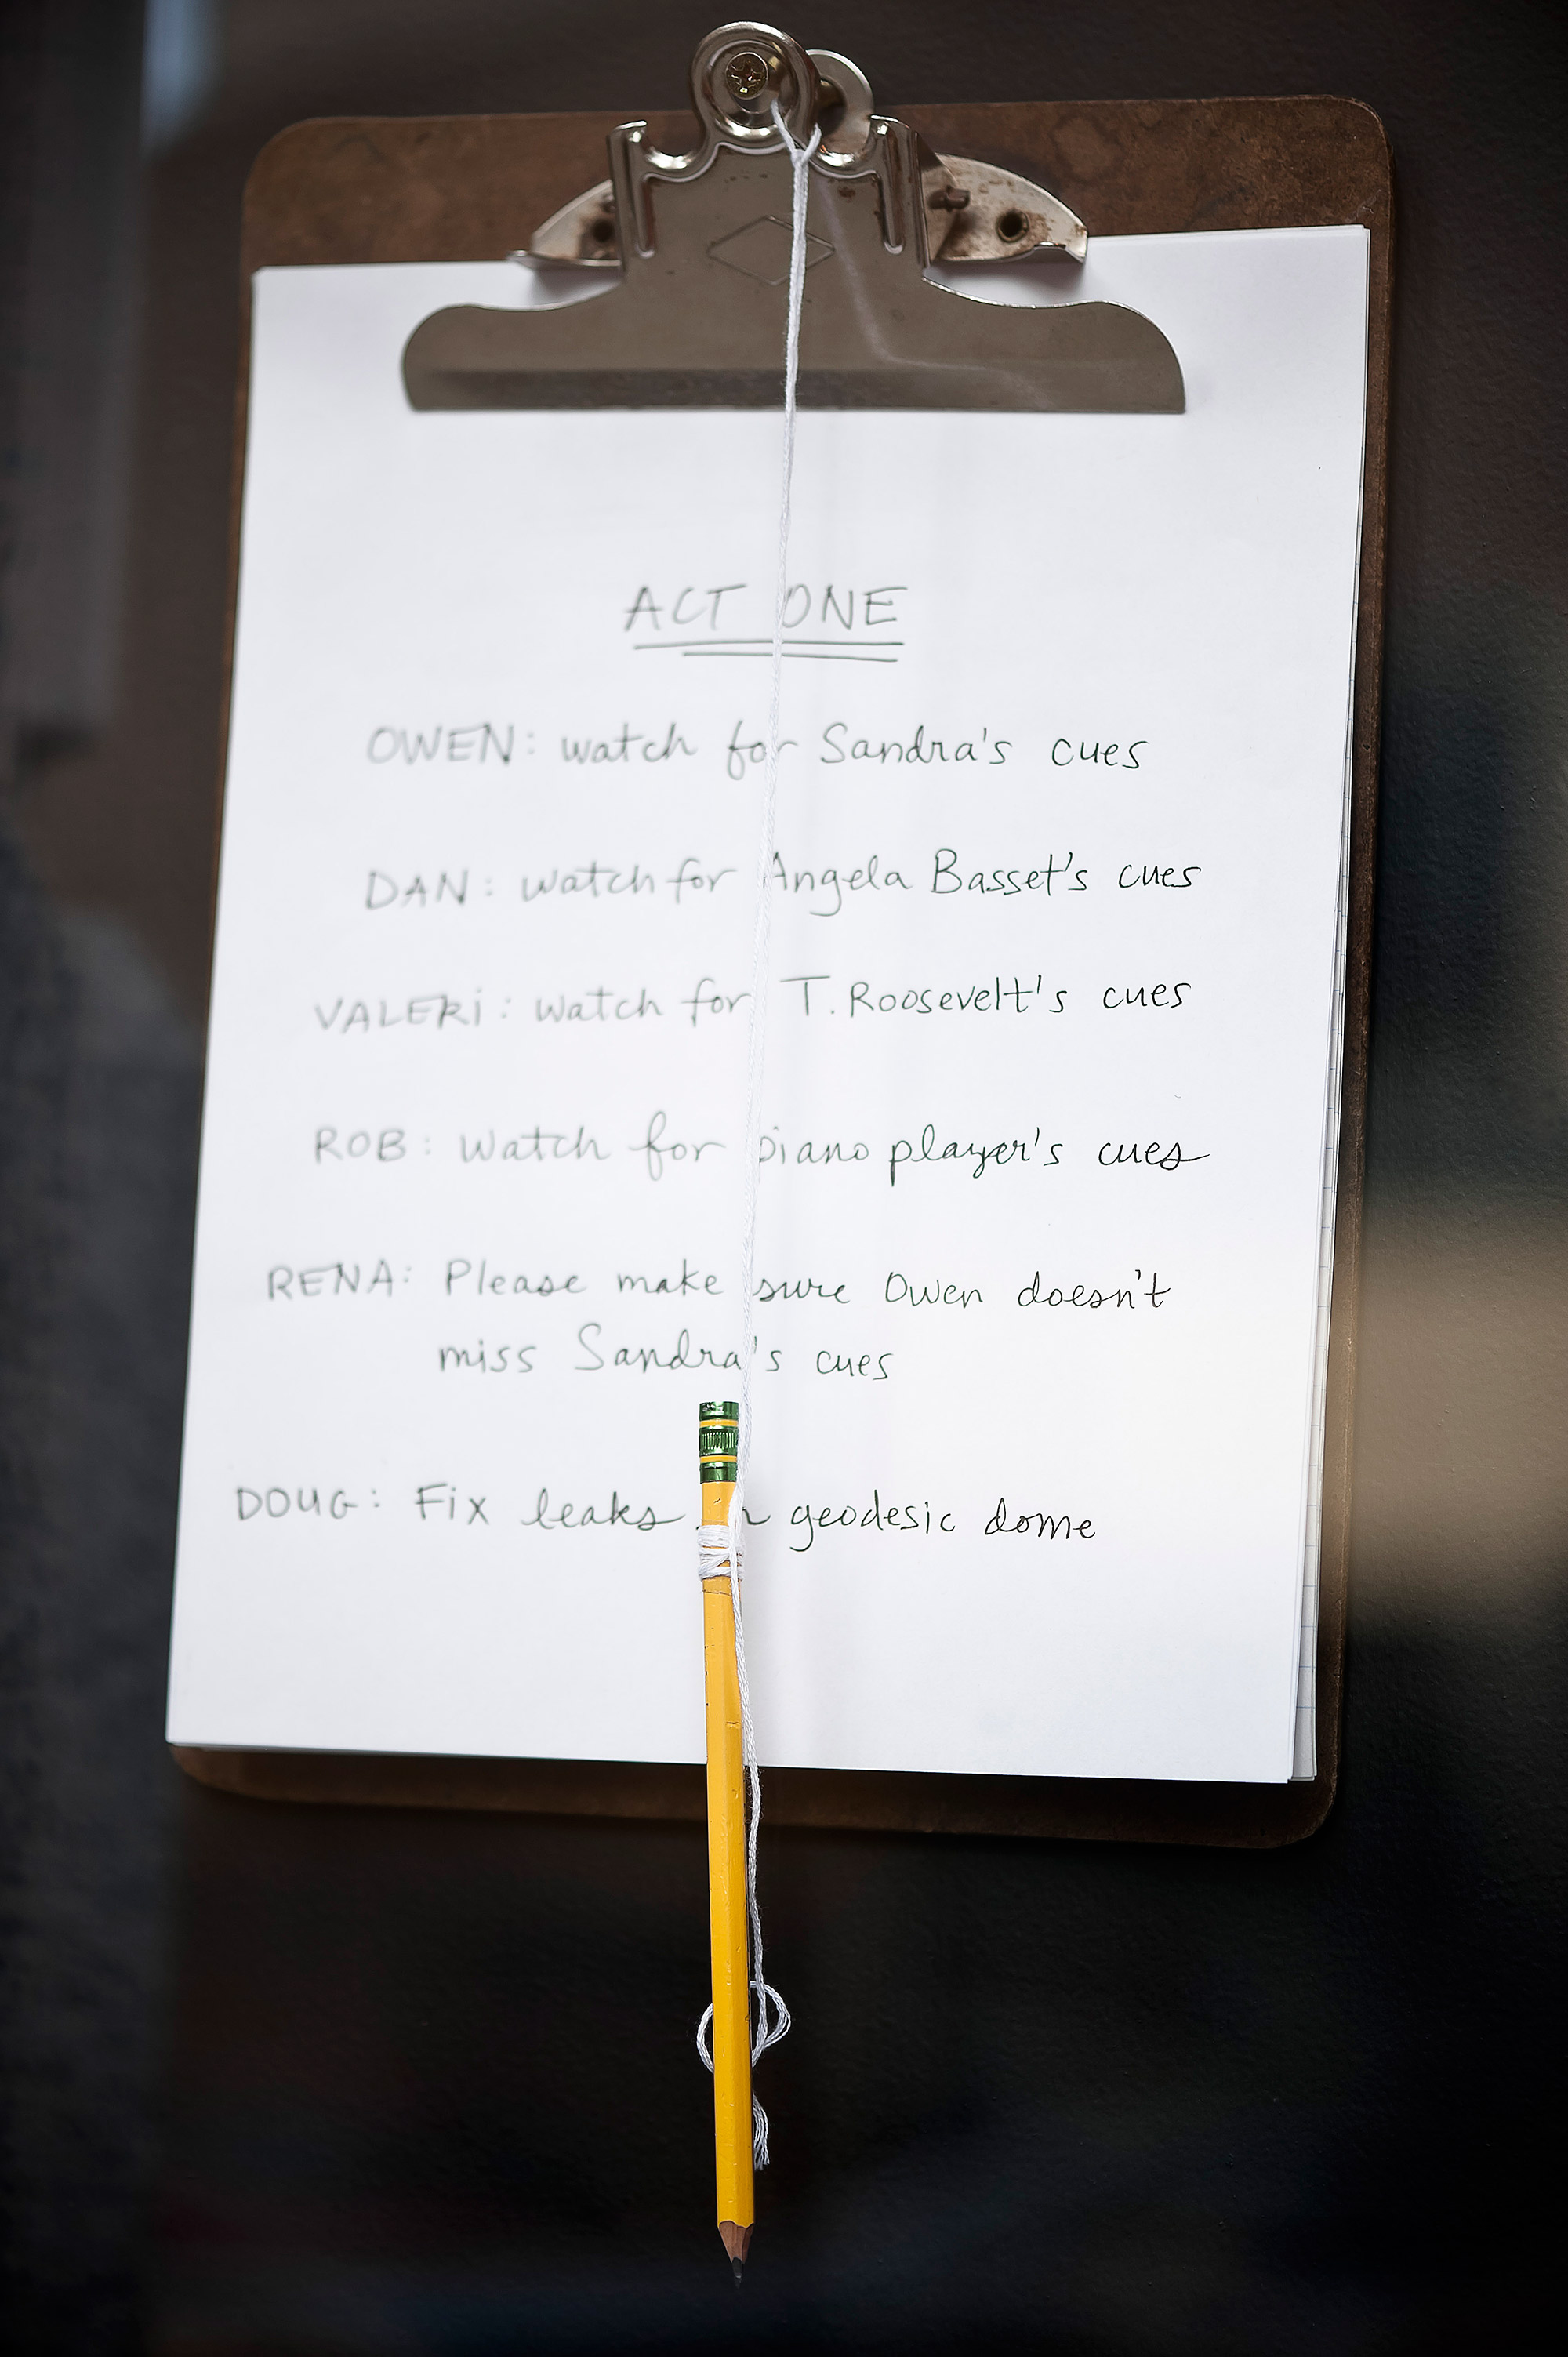 ACT ONE
OWEN: watch for Sandra's cues
DAN: watch for Angela Basset's cues
VALERI: watch for T. Roosevelt's cues
ROB: watch for piano player's cues
RENA: Please make sure Owen doesn't
miss Sandra's cues
DOUG: Fix leaks geodesic dome